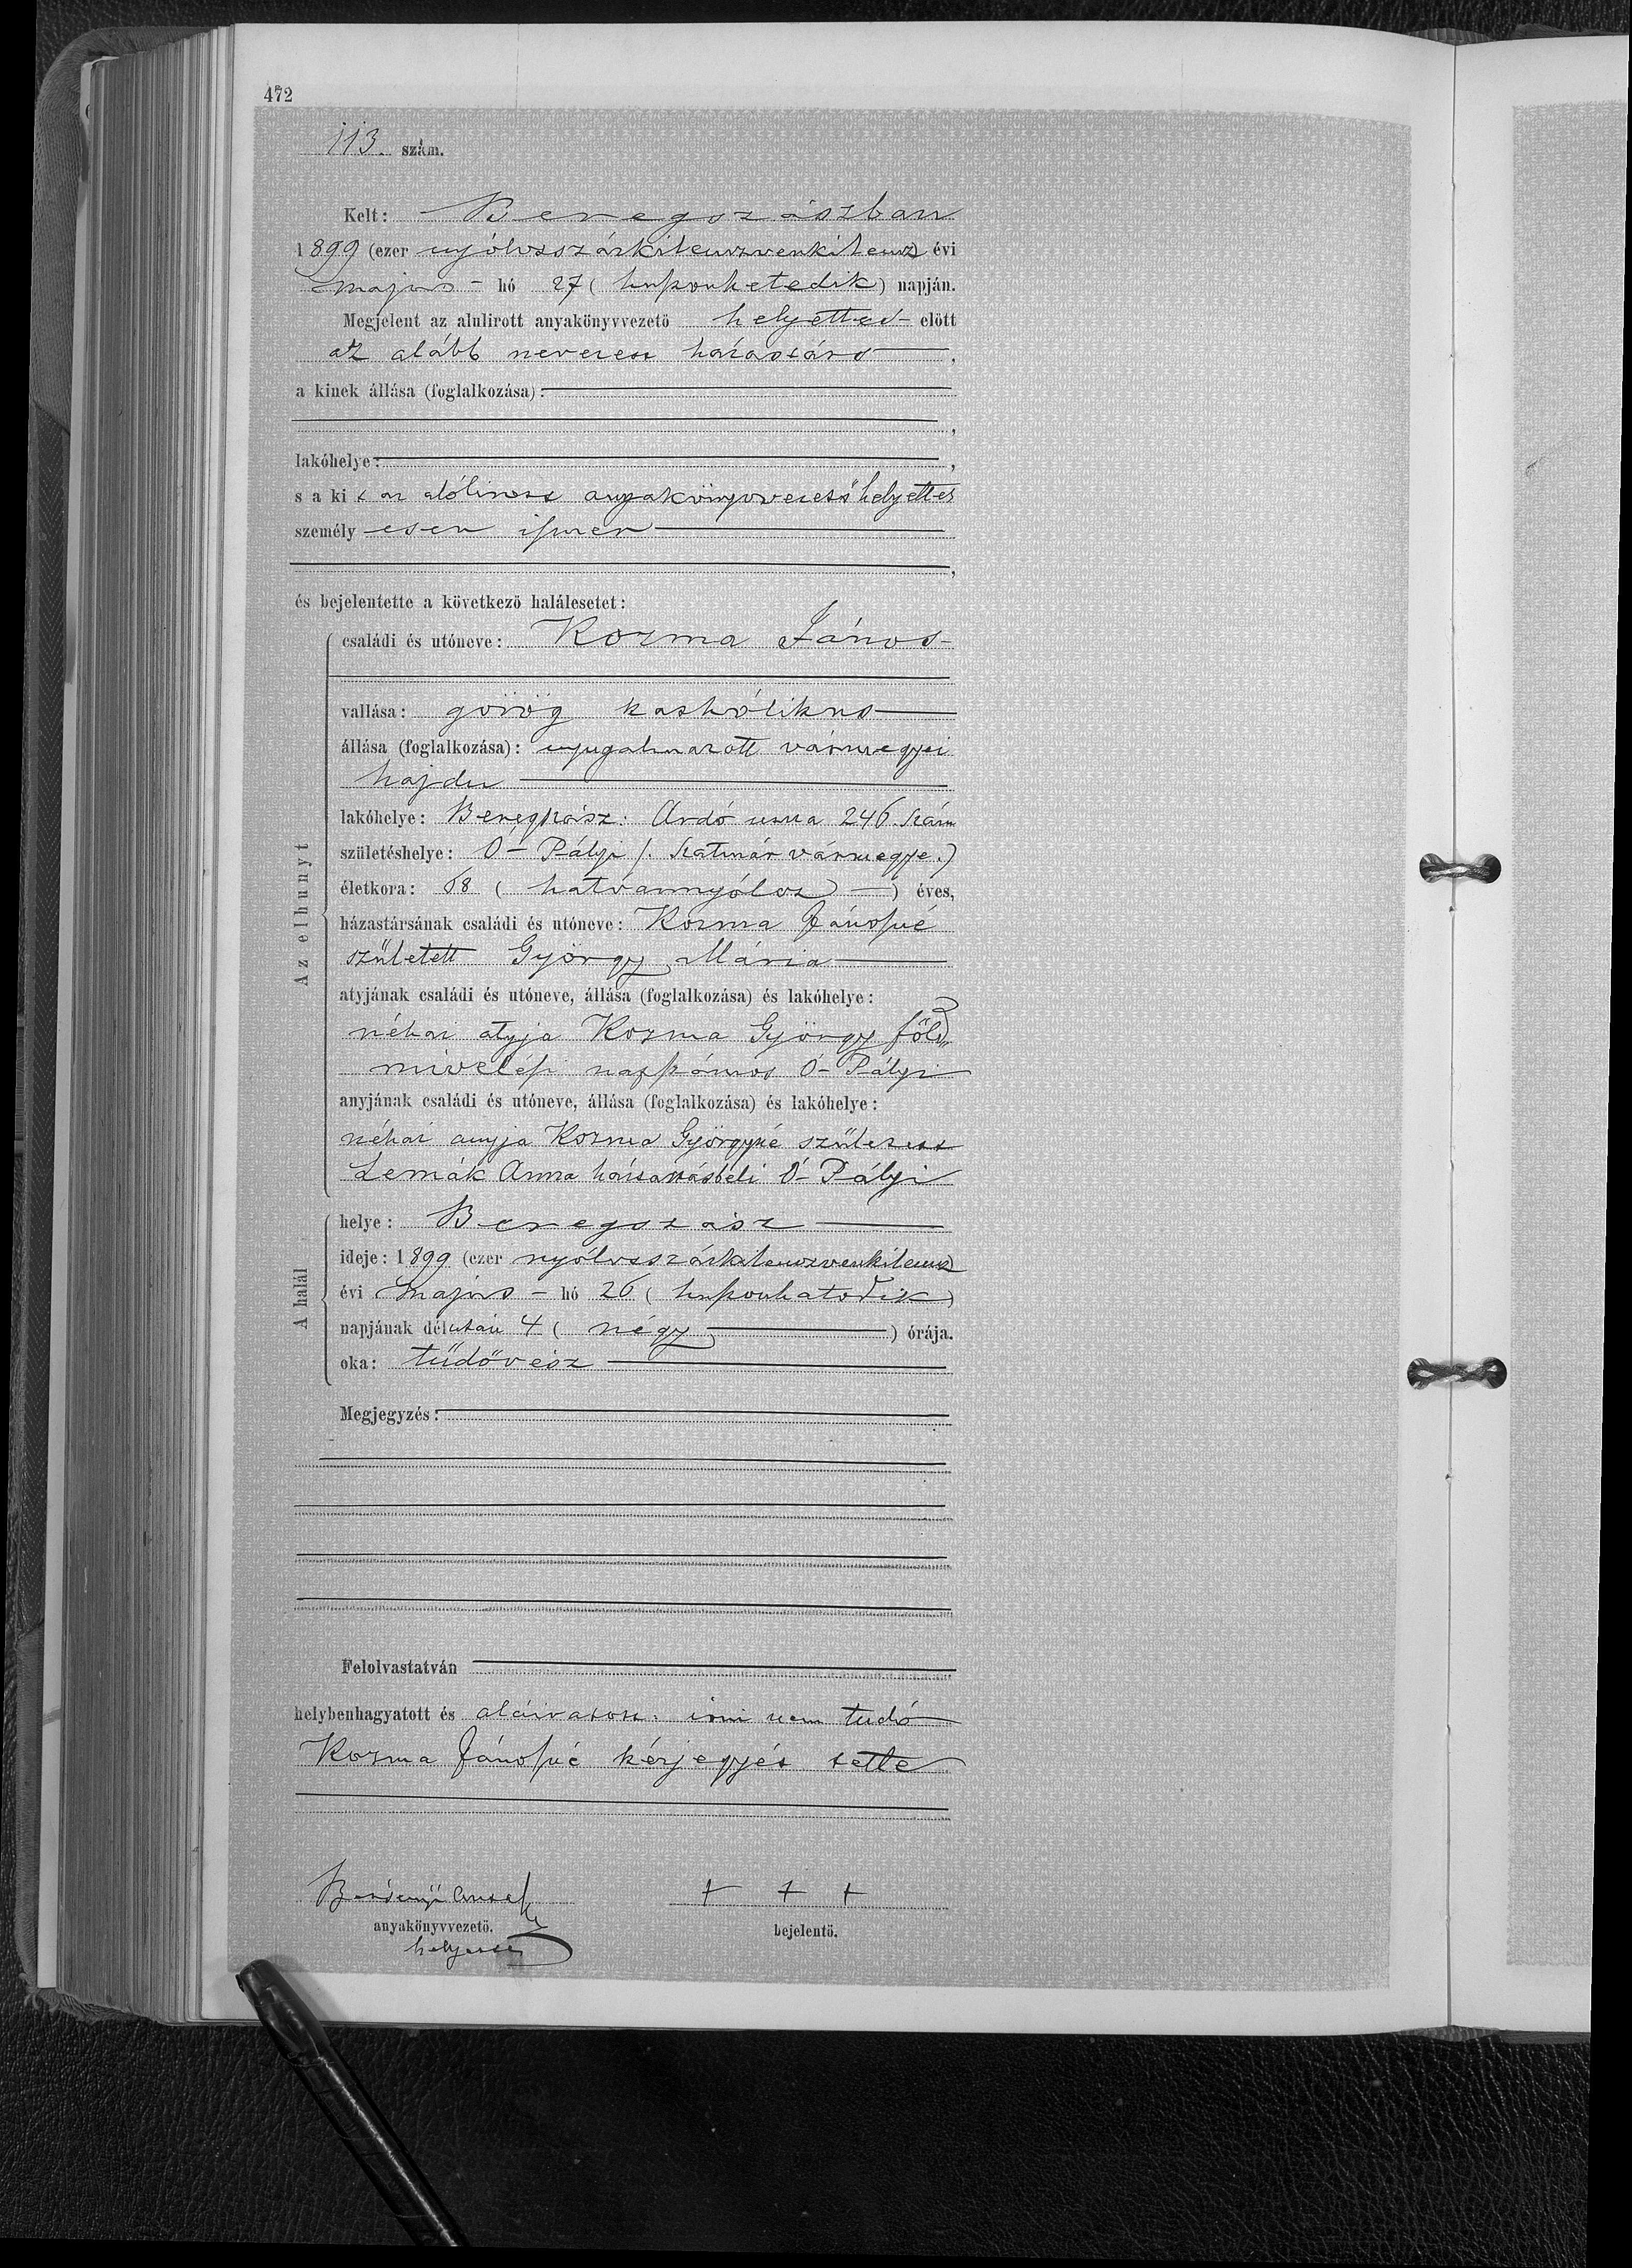 472
113. szám.
Kelt: Beregszászban
1899 (ezer nyólczszázkilenczvenkilencz) évi
május - hó 27 (huszonhetedik) napján.
Megjelent az alulirott anyakönyvvezető helyettes előtt
az alább nevezett házastárs,
a kinek állása (foglalkozása):
,
lakóhelye: ,
s a kit az alólirott anyakönyvvezető helyettes
személyesen ismer
,
és bejelentette a következő halálesetet:
Az elhunyt
családi és utóneve: Kozma János
vallása: görög katholikus
állása (foglalkozása): nyugalmazott vármegyei
hajdu
lakóhelye: Beregszász: Ardó utcza 246. szám
születéshelye: Ó-Pályi /. Szatmár vármegye.)
életkora: 68 (hatvannyólcz) éves,
házastársának családi és utóneve: Kozma Jánosné
született György Mária
atyjának családi és utóneve, állása (foglalkozása) és lakóhelye:
néhai atyja Kozma György föld„
mivelési napszámos Ó-Pályi
anyjának családi és utóneve, állása (foglalkozása) és lakóhelye:
néhai anyja Kozma Györgyné született
Lemák Anna háztartásbeli Ó-Pályi
A halál
helye: Beregszász
ideje: 1899 (ezer nyólczszázkilenczvenkilencz)
évi május - hó 26 (huszonhatodik)
napjának délután 4 (négy) órája.
oka: tüdővész
Megjegyzés:
Felolvastatván
helybenhagyatott és aláiratott. irni nem tudó
Kozma Jánosné kézjegyét tette
+ + +
anyakönyvvezető. bejelentő.
helyettes